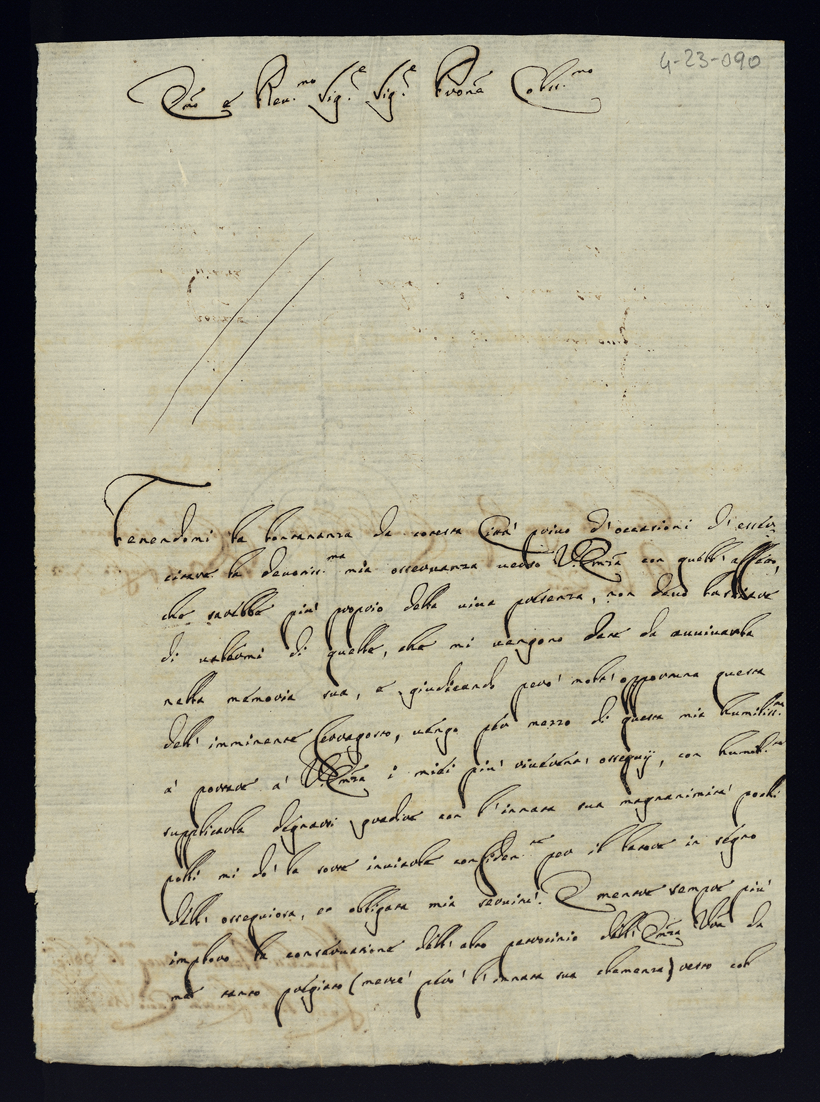 4-23-090
Em.mo e Rev.mo Sig.re Sig.re P'rone Col.mo
Tenendomi la lontananza da cotesta Città privo d'occasioni d'eserci-
citare la devotiss.ma mia osservanza verso V. Em.za con quell'affetto,
che sarebbe più proprio della viva presenza, non devo tralasciare
di valermi di quelle, che mi vengono date da avvivarla
nella memoria sua, e giudicando però molto opportuna questa
dell'imminente Ferragosto, vengo per mezzo di questa mia humiliss.ma
a' portare a' V. Em.za i miei più riverenti ossequij, con humil.te
supplicarla degnarsi gradire con l'innata sua magnanimità pochi
polli mi dò la sorte inviarle confiden.te per il latore in segno
dell'ossequiosa, et obligata mia servitù. E mentre sempre più
imploro la conservatione dell'alto patrocinio dell'Em.za V'ra da
me tanto pregiato (mercè però l'innata sua clemenza) resto col